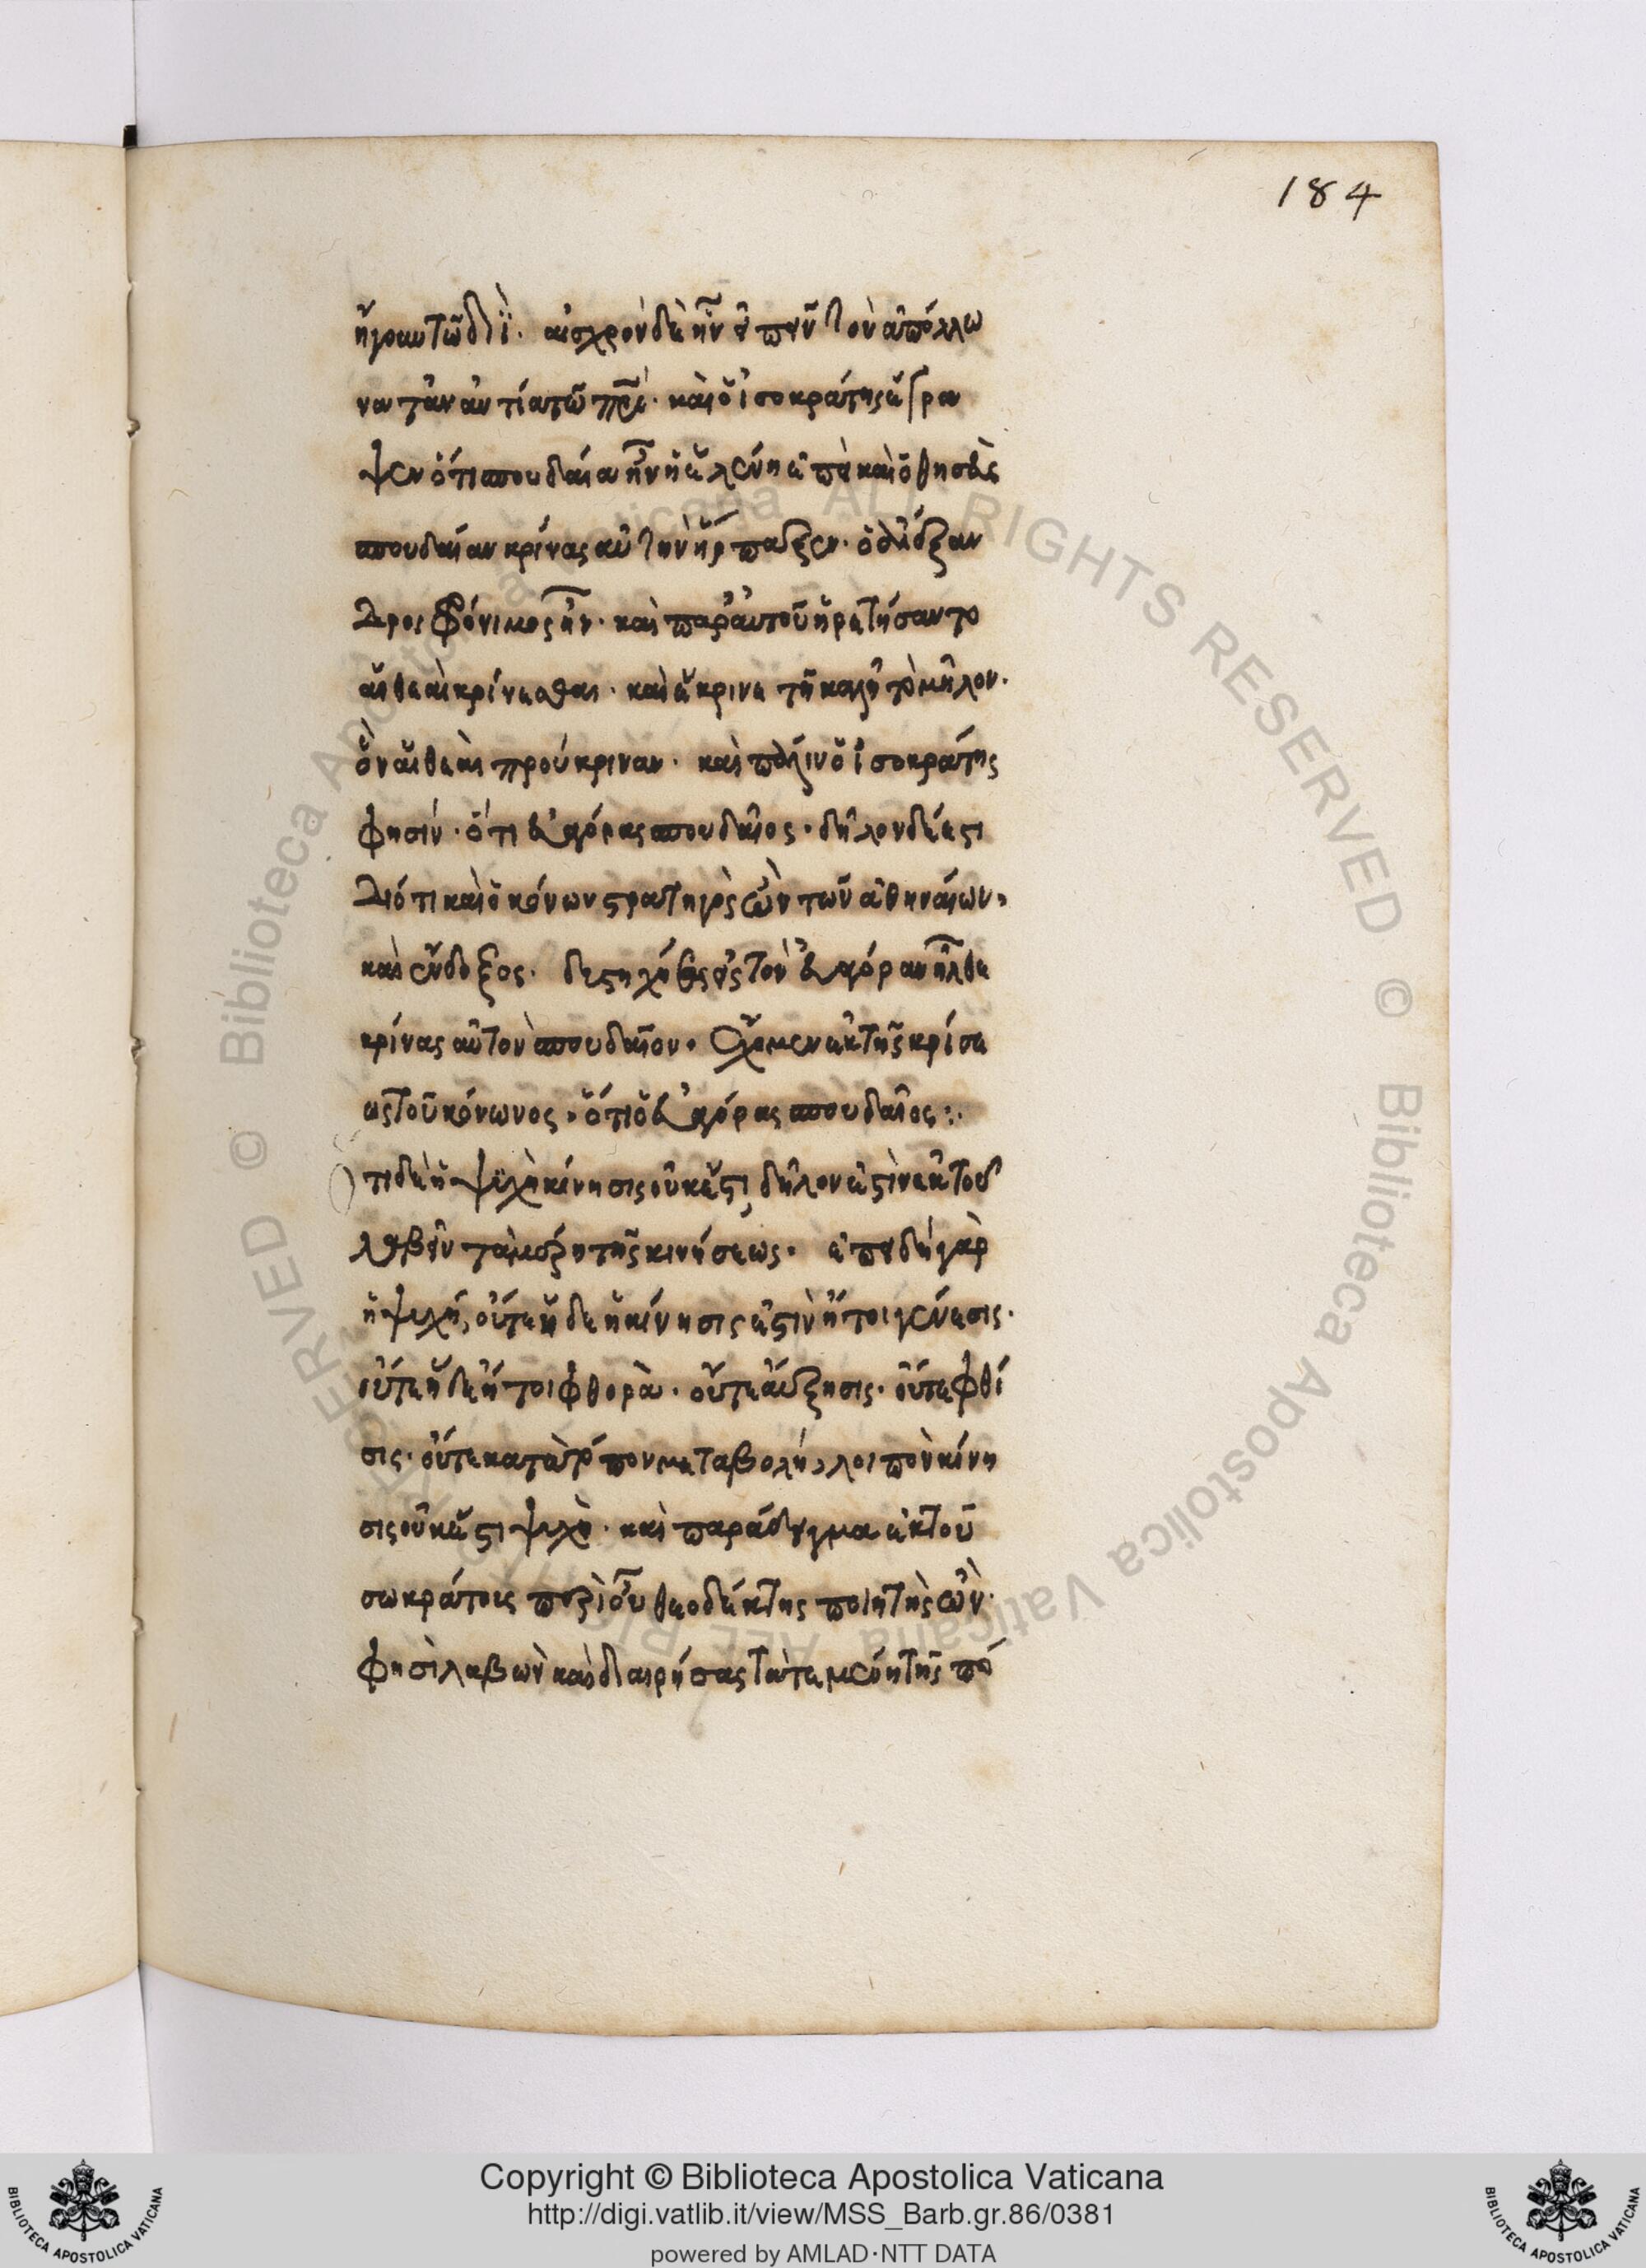 184
ἤγουν τῶ διΐ. αἰσχρὸν δὲ ἦν εἰπεῖν τὸν ἀπόλλω
να τἀναντία τῶ πρι. καὶ ὁ ἰσοκράτης ἔγρα
ψεν ὅτι σπουδαία ἦν ἡ ἑλένη ἐπεὶ καὶ ὁ θησεὺς
σπουδαίαν κρίνας αὐτὴν ἥρπαξεν. ὁ ἀλέξαν
δρος φρόνιμος ἦν. καὶ παρ' αὐτοῦ ἠρετήσαντο
αἱ θεαὶ κρίνεσθαι. καὶ ἔκρινε τῇ καλῇ τὸ μῆλον.
ὃν αἱ θεαὶ προύκριναν. καὶ πάλιν ὁ ἰσοκράτης
φησίν. ὅτι εὐαγόρας σπουδαῖος. δῆλον δέ ἐστι
διότι καὶ ὁ κόνων στρατηγὸς ὢν τῶν ἀθηναίων,
καὶ ἔνδοξος. δυστυχήσας εἰς τὸν εὐαγόραν ἦλθε
κρίνας αὐτὸν σπουδαῖον. ἔχομεν ἐκ τῆς κρίσε
ως τοῦ κόνωνος, ὅτι ὁ εὐαγόρας σπουδαῖος:.
ὅτι δὲ ἡ ψυχὴ κίνησις οὐκ ἔστι, δῆλόν ἐστιν ἐκ τοῦ
λαβεῖν τὰ μέρη τῆς κινήσεως. ἐπειδὴ γὰρ
ἡ ψυχή, οὔτε ἥδε ἡ κίνησίς ἐστιν ἤτοι γένεσις.
οὔτε ἥδε ἤτοι φθορὰ. οὔτε αὔξησις. οὔτε φθί
σις. οὔτε κατὰ τόπον μεταβολή, λοιπὸν κίνη
σις οὐκ ἔστι ψυχὴ. καὶ παράδειγμα ἐκ τοῦ
σωκράτους περὶ οὗ θεοδέκτης ποιητὴς ὢν.
φησὶ λαβὼν καὶ διαιρήσας τὰ τεμένη τῆς πό
Copyright © Biblioteca Apostolica Vaticana
http://digi.vatlib.it/view/MSS_Barb.gr.86/0381
powered by AMLAD·NTT DATA